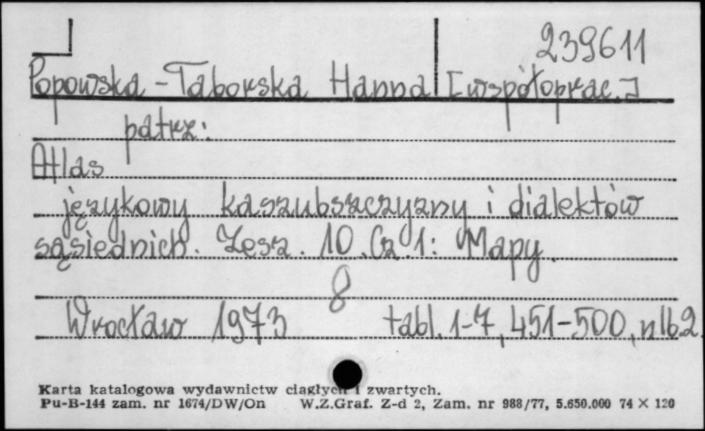 239611
Popowska-Taborska Hanna [współoprac.]
patrz:
Atlas
językowy kaszubszczyzny i dialektów
sąsiednich. Zesz. 10. Cz. 1: Mapy.
8
Wrocław 1973 tabl. 1-7, 451-500, nlb. 2
Karta katalogowa wydawnictw ciągłych i zwartych.
Pu-B-144 zam. nr 1674/DW/On W.Z.Graf. Z-d 2, Zam. nr 988/77, 5.650.000 74 X 120